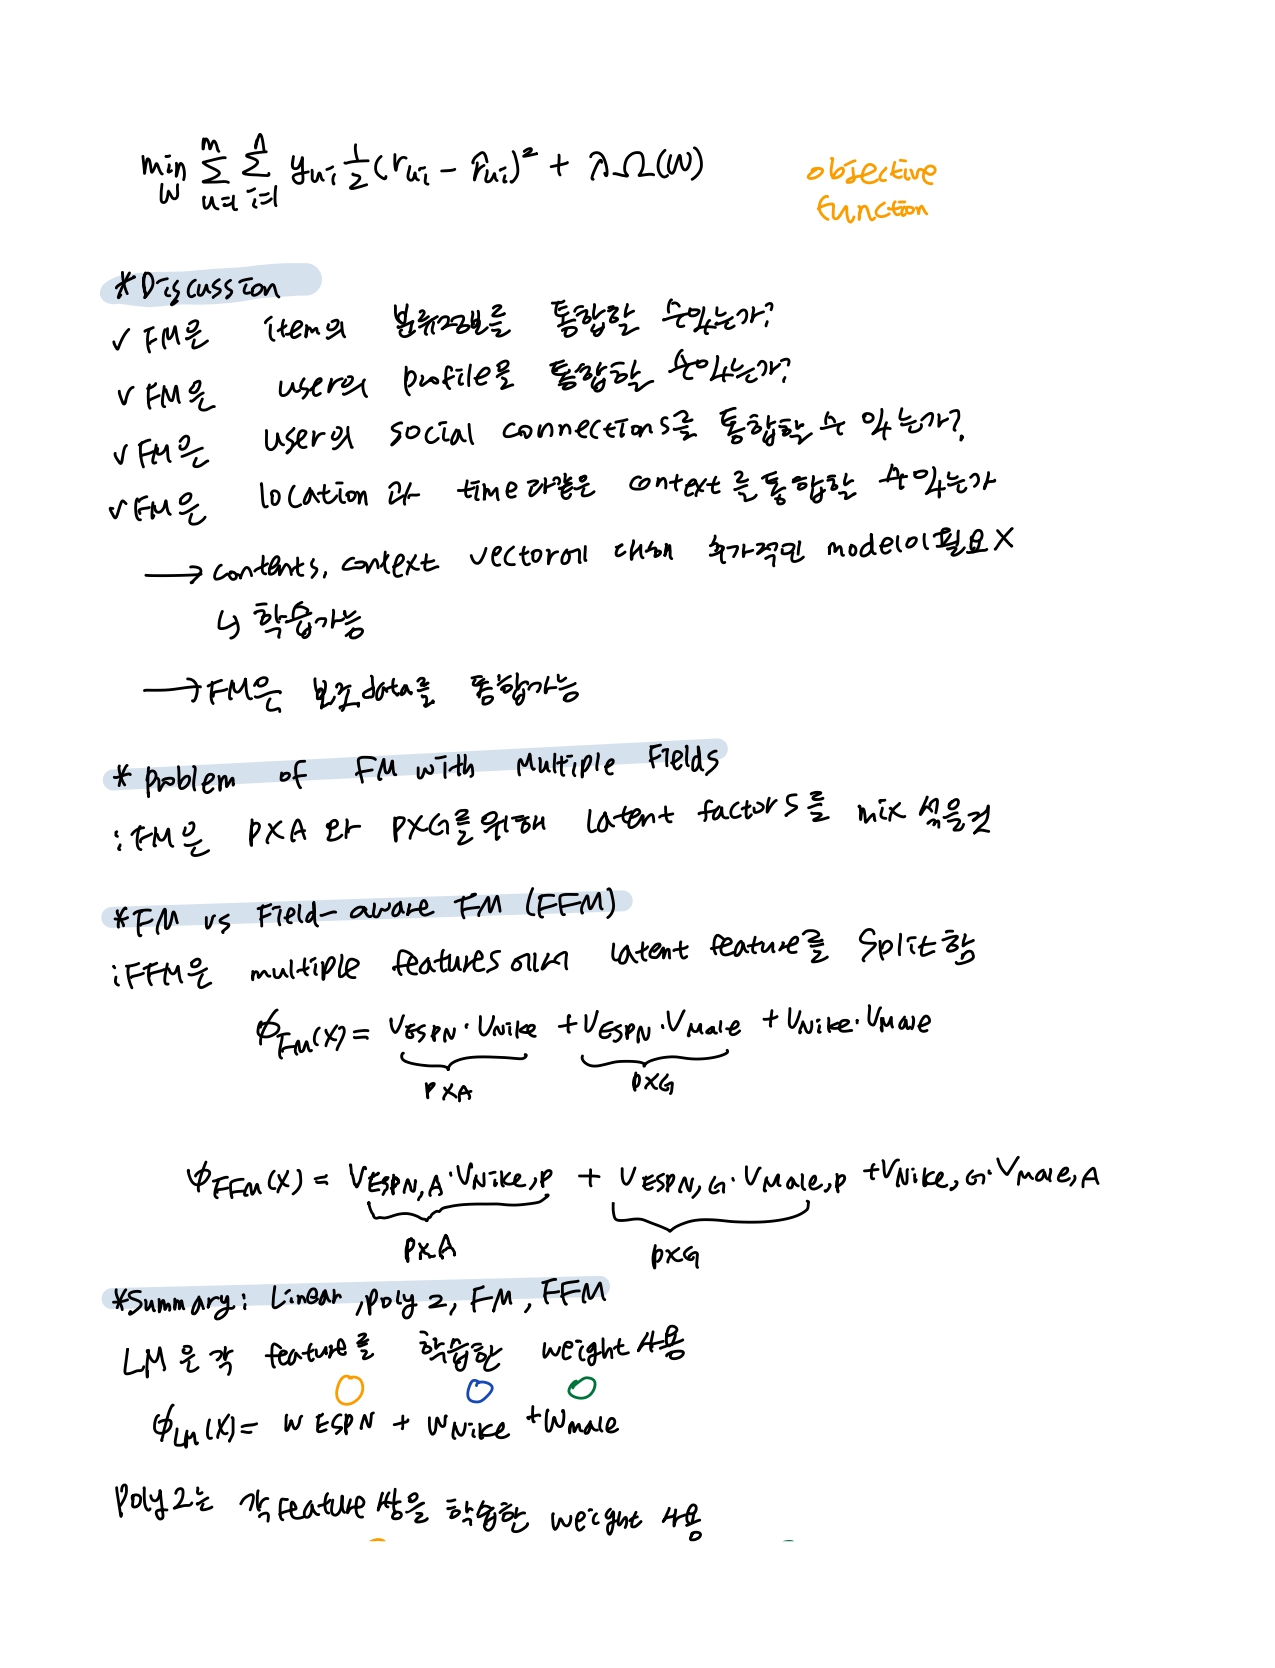 min_W Σ_{u=1}^{m} Σ_{i=1}^{n} y_{ui} 1/2 (r_{ui} - r̂_{ui})² + λΩ(W)
objective
function
*Discussion
✓ FM은 item의 분류정보를 통합할 수있는가?
✓ FM은 user의 profile을 통합할 수있는가?
✓ FM은 user의 social connections를 통합할 수 있는가?
✓ FM은 location과 time과같은 context를 통합할 수있는가
→ contents, context vector에 대해 추가적인 model이 필요X
↳ 학습가능
→ FM은 보조data를 통합가능
* problem of FM with Multiple Fields
: FM은 PXA 와 PXG를위해 latent factors를 mix 섞을것
*FM vs Field-aware FM (FFM)
: FFM은 multiple features에서 latent feature를 split함
φ_{FM}(X) = V_{ESPN}·V_{Nike} + V_{ESPN}·V_{Male} + V_{Nike}·V_{Male}
PXA PXG
φ_{FFM}(X) = V_{ESPN,A}·V_{Nike,P} + V_{ESPN,G}·V_{Male,P} + V_{Nike,G}·V_{Male,A}
PXA PXG
*Summary: Linear, poly 2, FM, FFM
LM은각 feature를 학습한 weight 사용
φ_{LM}(X) = W_{ESPN} + W_{Nike} + W_{male}
Poly2는 각feature쌍을 학습한 weight 사용